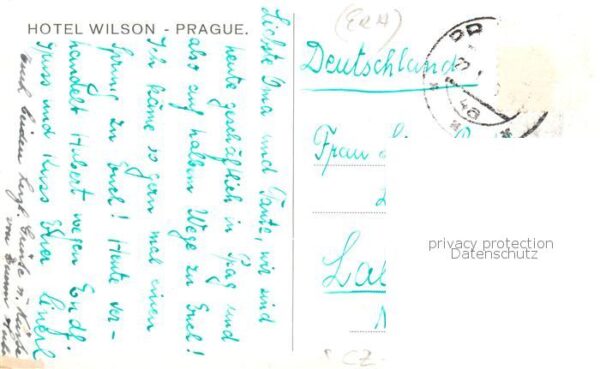 HOTEL WILSON - PRAGUE.
Liebste Oma und Tante, wir sind
heute geschäftlich in Prag und
also auf halben Wege zu Euch!
Ich käme so gern mal einen
Sprung zu Euch! Heute ver-
handelt Hubert wegen
Gruss und Kuss Eure
auch beiden herzl. Grüße u. Küsse
von Eurem
Deutschland
Frau
privacy protection
Datenschutz
CZ